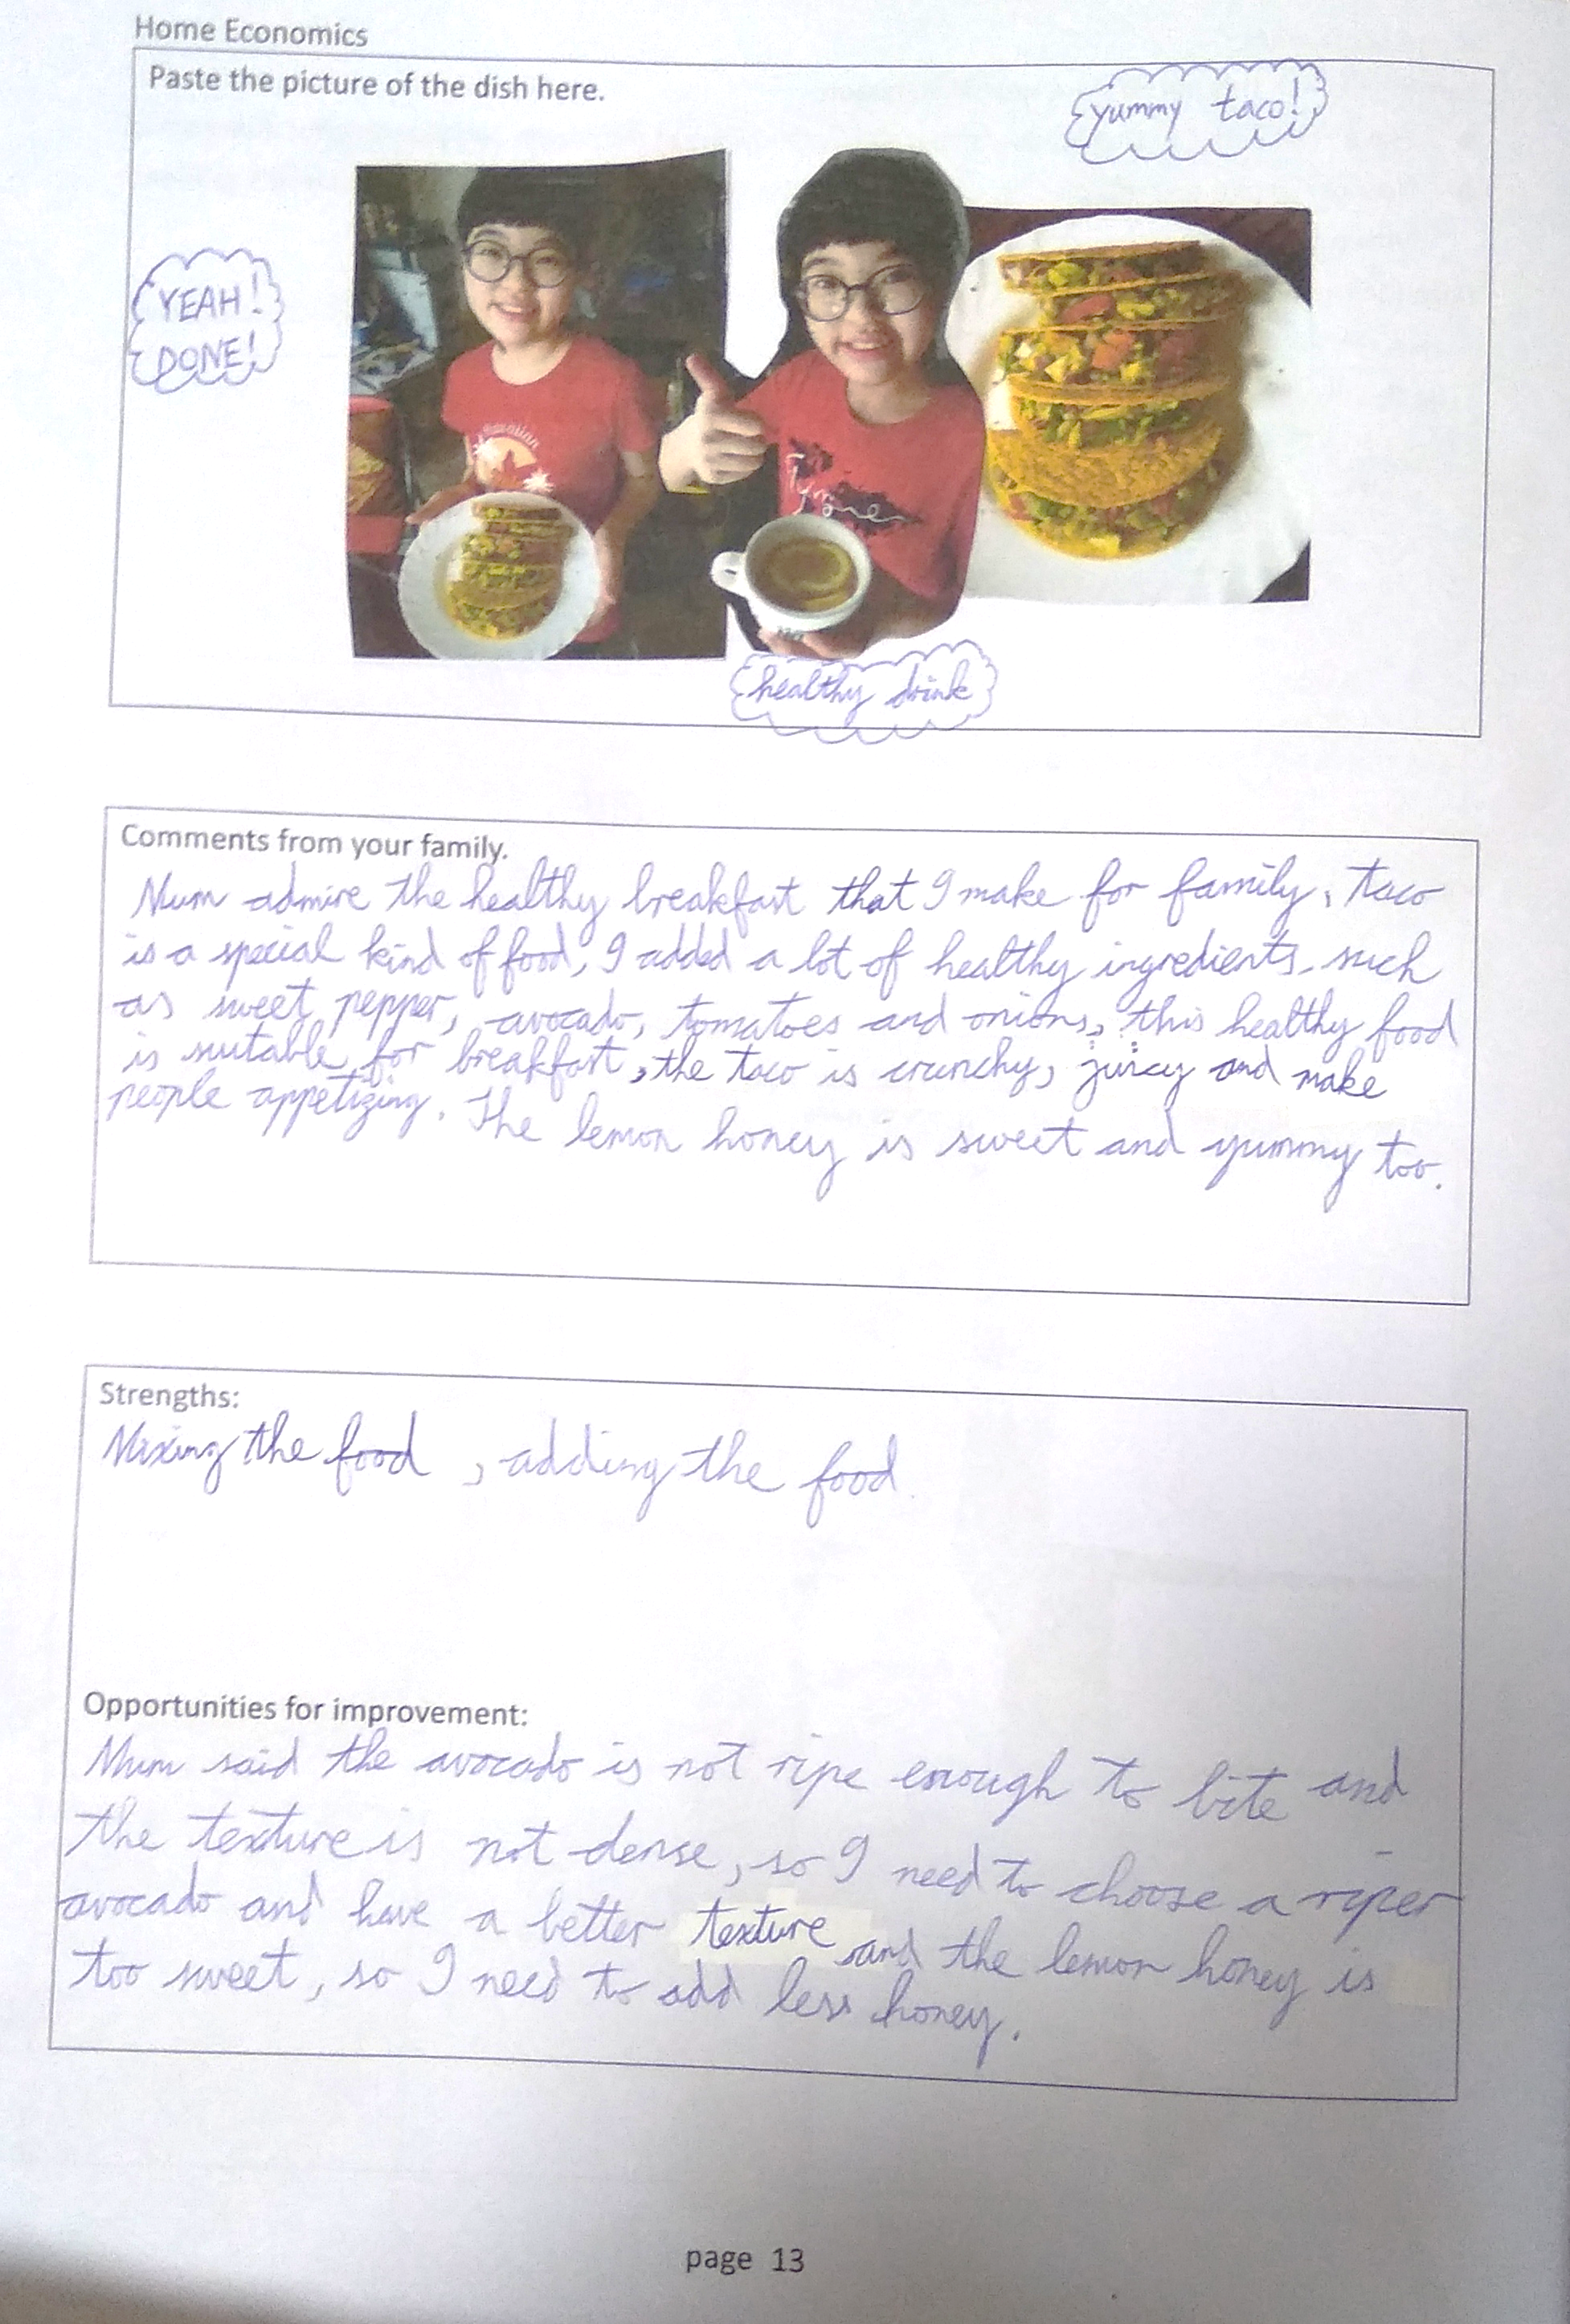 Home Economics
Paste the picture of the dish here.
yummy taco!
YEAH!
DONE!
healthy drink
Comments from your family.
Mum admire the healthy breakfast that I make for family, taco
is a special kind of food, I added a lot of healthy ingredients, such
as sweet pepper, avocado, tomatoes and onions, this healthy food
is suitable for breakfast, the taco is crunchy, juicy and make
people appetizing. The lemon honey is sweet and yummy too.
Strengths:
Mixing the food , adding the food.
Opportunities for improvement:
Mum said the avocado is not ripe enough to bite and
the texture is not dense, so I need to choose a riper
avocado and have a better texture and the lemon honey is
too sweet, so I need to add less honey.
page 13